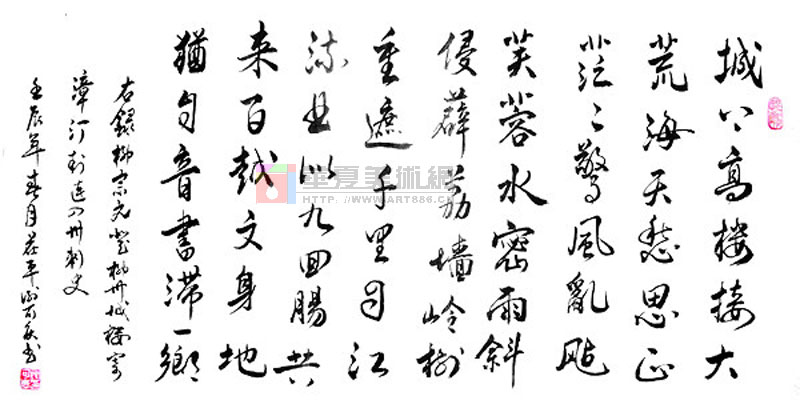 城上高楼接大
荒海天愁思正
茫々驚風亂颭
芙蓉水密雨斜
侵薜荔墻嶺樹
重遮千里目江
流曲似九回腸共
来百越文身地
猶自音書滞一鄉
右録柳宗元登柳州城楼寄
漳汀封連四州刺史
壬辰年春月
華夏美術網
HTTP://WWW.ART886.CN